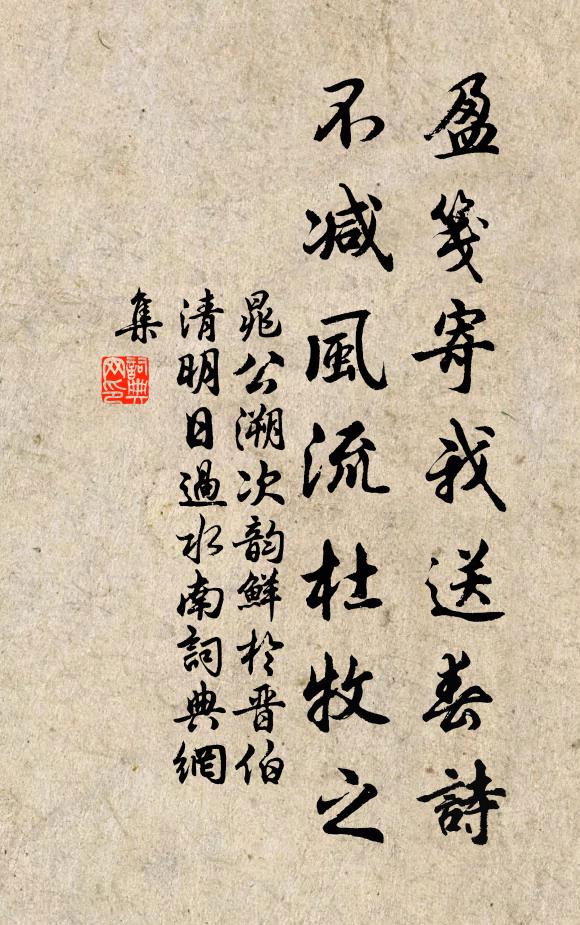 盈箋寄我送春詩
不減風流杜牧之
晁公溯次韵鮮於晋伯
清明日過水南詞典網
集
詞典
网印